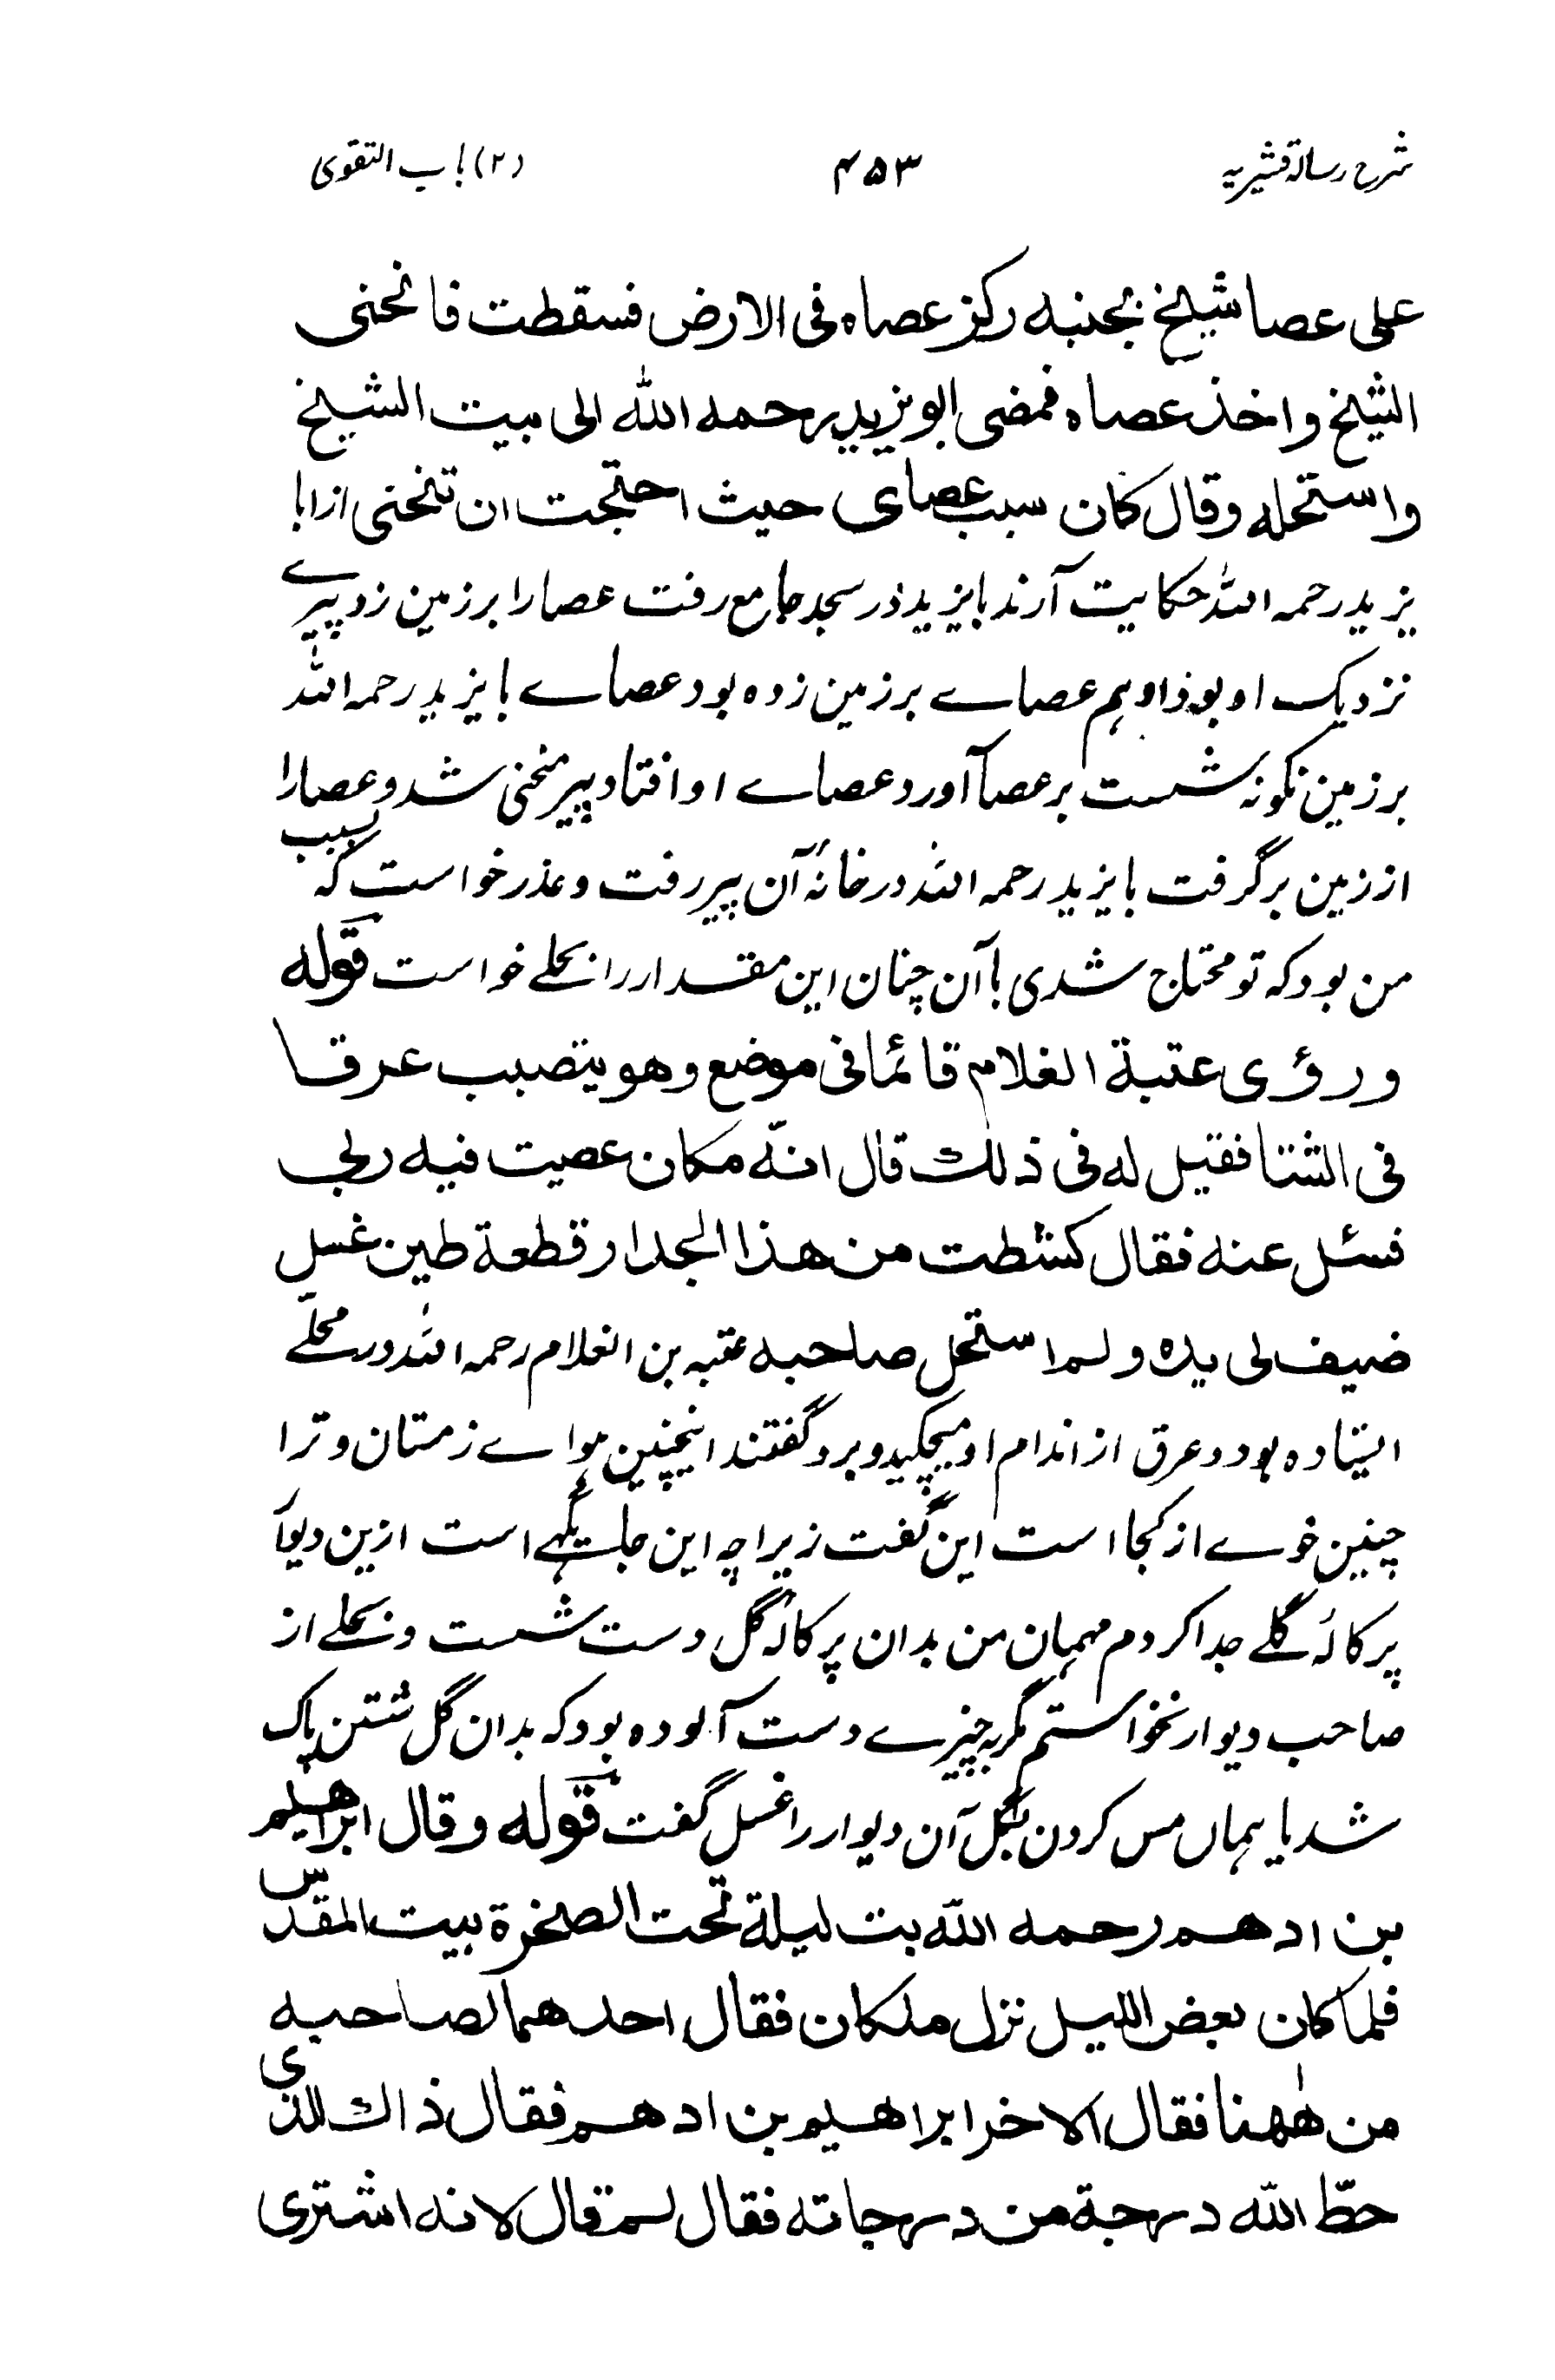 شرح رسالہ قشیریہ ۴۵۳ (۲) باب التقوی
علی عصا شیخ بجنبہ رکز عصاه فی الارض فسقطت فانحنی
الشیخ واخذ عصاه فمضی ابو یزید رحمہ اللہ الی بیت الشیخ
واستحلہ وقال کان سبب عصای حیث احتجت ان تنحنی از ابا
یزید رحمہ اللہ حکایت آرند بایزید در مسجد جامع رفت عصا را بر زمین زد پیرے
نزدیک او بود او ہم عصاے بر زمین زدہ بود عصاے بایزید رحمہ اللہ
بر زمین نگونہ شست بر عصا آورد عصاے او افتاد پیر منحنی شد و عصا را
از زمین بر گرفت بایزید رحمہ اللہ در خانۂ آن پیر رفت و عذر خواست کہ بسبب
من بود کہ تو محتاج شدی با آن چنان این مقدار را بحلے خواست قولہ
ورؤی عتبة الغلام قائما فی موضع وهو یتصبب عرقا
فی الشتا فقیل لہ فی ذلك قال انّہ مکان عصیت فیہ ربی
فسئل عنہ فقال کشطت من هذا الجدار قطعة طین غسل
ضیف لی یده ولم استحل صاحبہ عتبہ بن الغلام رحمہ اللہ در محلے
ایستادہ بود و عرق از اندام او میچکید و برو گفتند اینچنین ہواے زمستان و ترا
چنین خوے از کجا است این گفت زیرا چہ این جاے گنہے است ازین دیوار
پرکالۂ گلے جدا کردم مہمان من بدان پرکالۂ گل دست شست و بحلے از
صاحب دیوار نخواستم مگر بہ چیزے دست آلودہ بود کہ بدان گل شستن پاک
شد یا ہمان مس کردن بگل آن دیوار را غسل گفت قولہ وقال ابراهیم
بن ادهم رحمہ اللہ بت لیلة تحت الصخرة بیت المقدس
فلما کان بعض اللیل نزل ملکان فقال احدهما لصاحبہ
من ههنا فقال الاخر ابراهیم بن ادهم فقال ذاك الذی
حطّ اللہ درجة من درجاتہ فقال لم قال لانہ اشتری